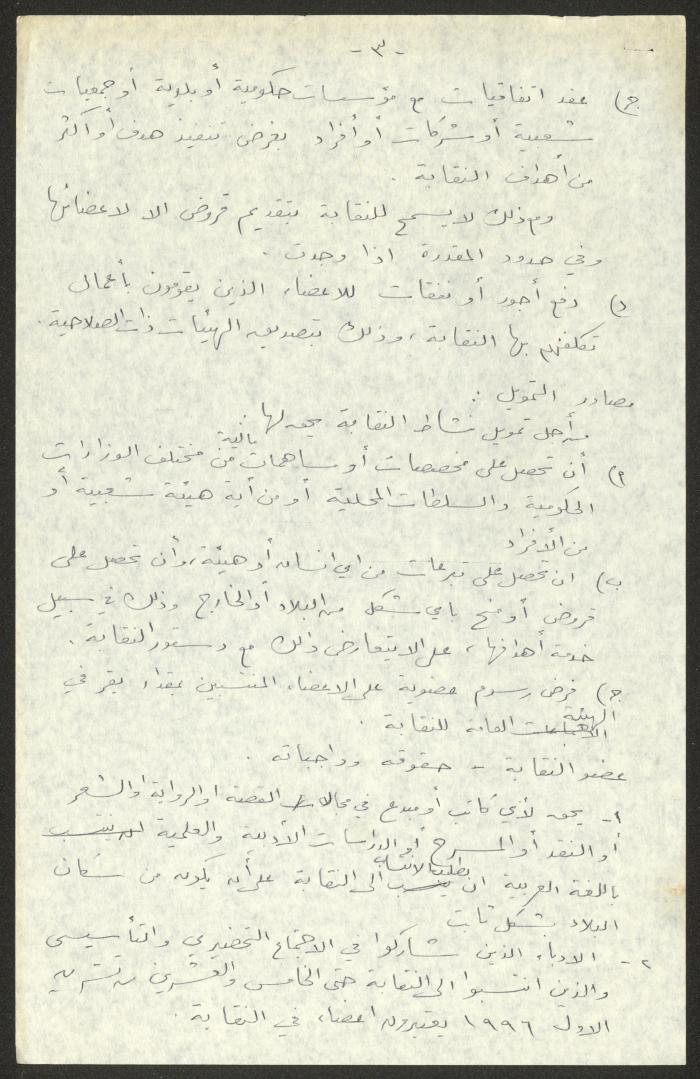 - ٣ -
ج) عقد اتفاقيات مع مؤسسات حكومية أو بلدية أو جمعيات
شعبية أو شركات أو أفراد بغرض تنفيذ هدف أو أكثر
من أهداف النقابة .
ومع ذلك لا يسمح للنقابة بتقديم قروض الا لاعضائها
وفي حدود المقدرة اذا وجدت .
د) دفع أجور أو نفقات للاعضاء الذين يقومون بأعمال
تكلفهم بها النقابة ، وذلك بتصديق الهيئات ذات الصلاحية .
مصادر التمويل :
من أجل تمويل نشاط النقابة يحق لها :
أ) أن تحصل على مخصصات أو مساهمات مالية من مختلف الوزارات
الحكومية والسلطات المحلية أو من أية هيئة شعبية أو
من الأفراد
ب) ان تحصل على تبرعات من اي انسان أو هيئة ، وأن تحصل على
قروض أو منح باي شكل من البلاد أو الخارج وذلك في سبيل
خدمة أهدافها ، على الا يتعارض ذلك مع دستور النقابة .
ج) فرض رسوم عضوية على الاعضاء المنتسبين بمقدار يقر في
الهيئة العامة للنقابة .
عضو النقابة - حقوقه وواجباته .
١- يحق لأي كاتب أو مبدع في مجالات القصة او الرواية او الشعر
أو النقد أو المسرح أو الدراسات الأدبية والعلمية
باللغة العربية ان يطلب الانتساب الى النقابة على أن يكون من سكان
البلاد بشكل ثابت
٢- الادباء الذين شاركوا في الاجتماع التحضيري والتأسيسي
والذين انتسبوا الى النقابة حتى الخامس والعشرين من تشرين
الاول ١٩٩٦ يعتبرون اعضاء في النقابة .